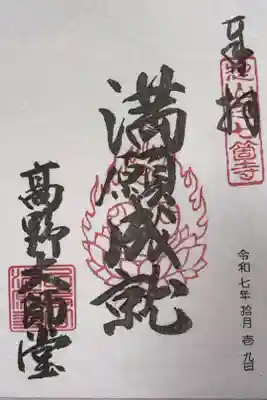 奉拝
満願成就
令和七年拾月壱九日
髙野大師堂